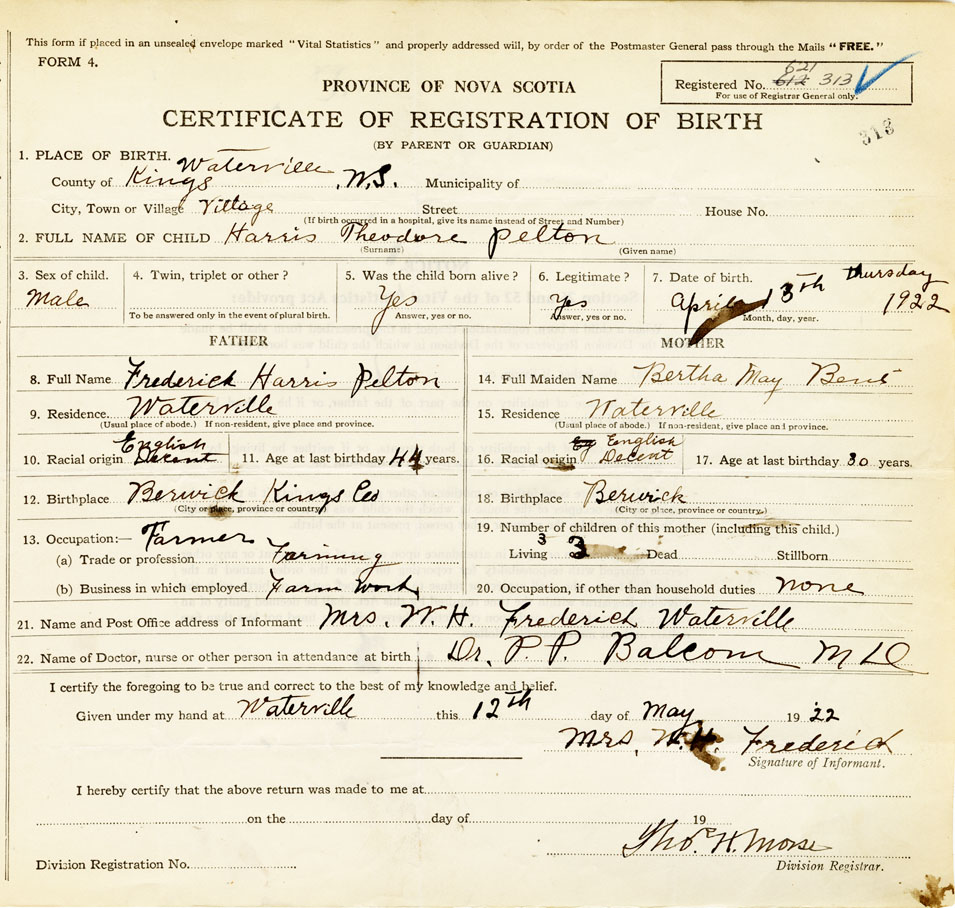 This form if placed in an unsealed envelope marked "Vital Statistics" and properly addressed will, by order of the Postmaster General pass through the Mails "FREE."
FORM 4.
621
Registered No. 612 313
For use of Registrar General only.
PROVINCE OF NOVA SCOTIA
CERTIFICATE OF REGISTRATION OF BIRTH
313
(BY PARENT OR GUARDIAN)
1. PLACE OF BIRTH. Waterville
County of Kings, N.S. Municipality of
City, Town or Village Village Street House No.
(If birth occurred in a hospital, give its name instead of Street and Number)
2. FULL NAME OF CHILD Harris Theodore Pelton
(Surname) (Given name)
3. Sex of child. 4. Twin, triplet or other? 5. Was the child born alive? 6. Legitimate? 7. Date of birth. Thursday
Male Yes Yes April 13th 1922
To be answered only in the event of plural birth. Answer, yes or no. Answer, yes or no. Month, day, year.
FATHER MOTHER
8. Full Name Frederick Harris Pelton 14. Full Maiden Name Bertha May
9. Residence. Waterville 15. Residence Waterville
(Usual place of abode.) If non-resident, give place and province. (Usual place of abode.) If non-resident, give place and province.
10. Racial origin English Decent 11. Age at last birthday 44 years. 16. Racial origin English Decent 17. Age at last birthday 30 years.
12. Birthplace Berwick Kings Co 18. Birthplace Berwick
(City or place, province or country.) (City or place, province or country.)
13. Occupation:— Farmer 19. Number of children of this mother (including this child.)
(a) Trade or profession Farming Living 3 3 Dead Stillborn
(b) Business in which employed Farm Work 20. Occupation, if other than household duties none
21. Name and Post Office address of Informant Mrs. W. H. Frederick Waterville
22. Name of Doctor, nurse or other person in attendance at birth Dr. P. P. Balcom M D
I certify the foregoing to be true and correct to the best of my knowledge and belief.
Given under my hand at Waterville this 12th day of May 1922
Mrs. W. H. Frederick
Signature of Informant.
I hereby certify that the above return was made to me at
on the day of 19
Thos H. Morse
Division Registration No. Division Registrar.